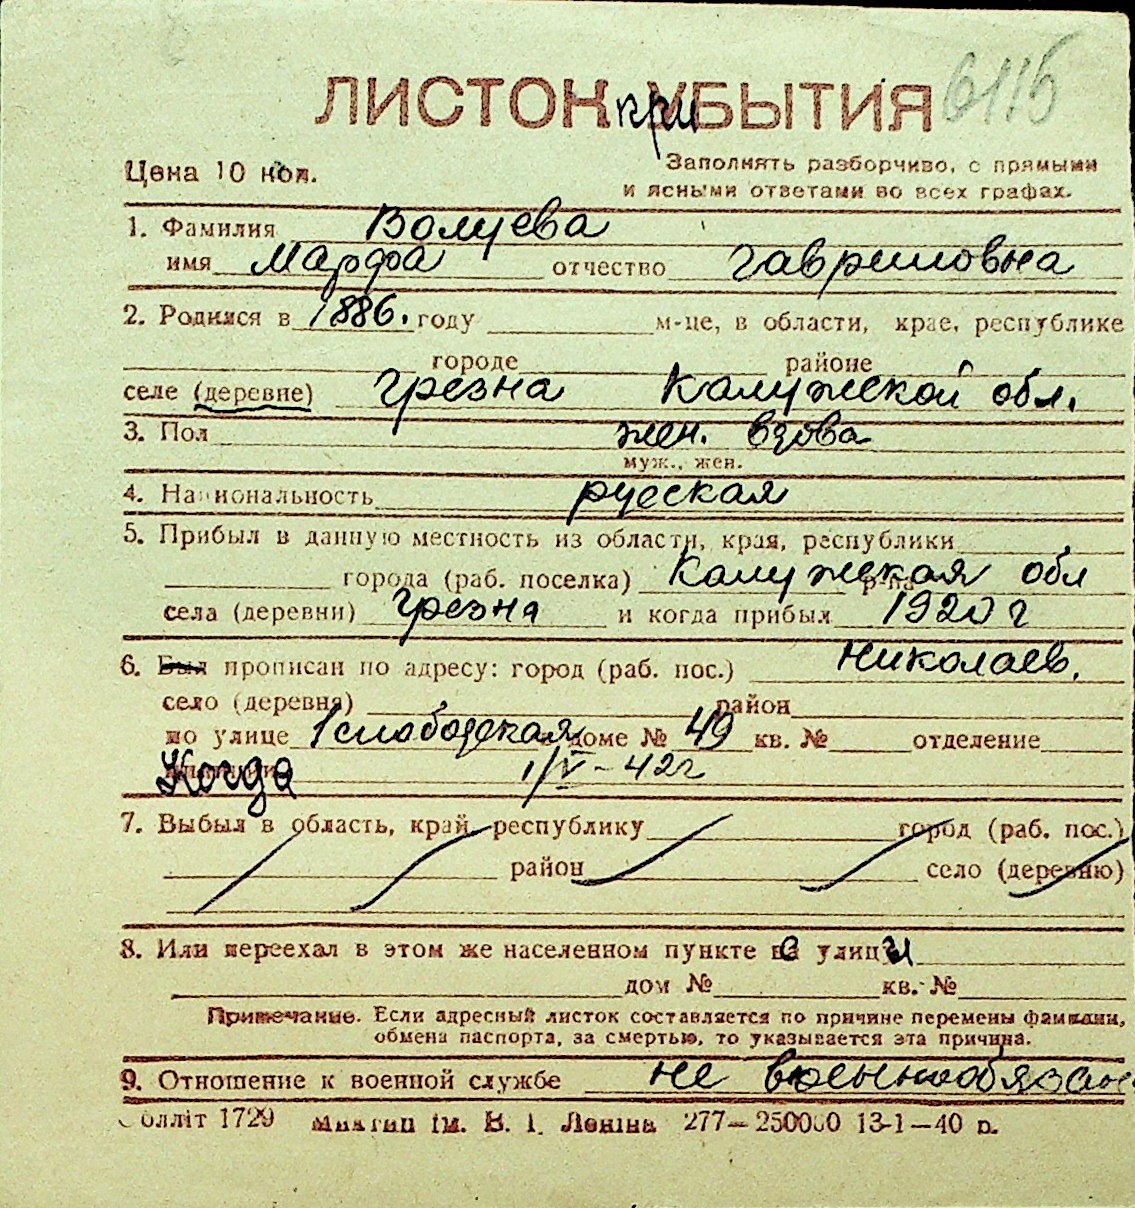 6115
ЛИСТОК прибытия
Цена 10 коп.
Заполнять разборчиво, с прямыми
и ясными ответами во всех графах.
1. Фамилия Волуева
имя Марфа отчество Гавриловна
2. Родился в 1886. году м-це, в области, крае, республике
городе районе
селе (деревне) Грезна Калужской обл.
3. Пол жен. вдова
муж., жен.
4. Национальность русская
5. Прибыл в данную местность из области, края, республики
города (раб. поселка) Калужская обл р-на
села (деревни) Грезна и когда прибыл 1920 г
6. Был прописан по адресу: город (раб. пос.) Николаев.
село (деревня) район
по улице 1 слободская доме № 49 кв. № отделение
Когда 1/V-42г
7. Выбыл в область, край, республику город (раб. пос.)
район село (деревню)
8. Или переехал в этом же населенном пункте с улицы
дом № кв. №
Примечание. Если адресный листок составляется по причине перемены фамилии,
обмена паспорта, за смертью, то указывается эта причина.
9. Отношение к военной службе не военнообязан
Облліт 1729 Миктип ім. В. І. Леніна 277—250000 13-1—40 р.